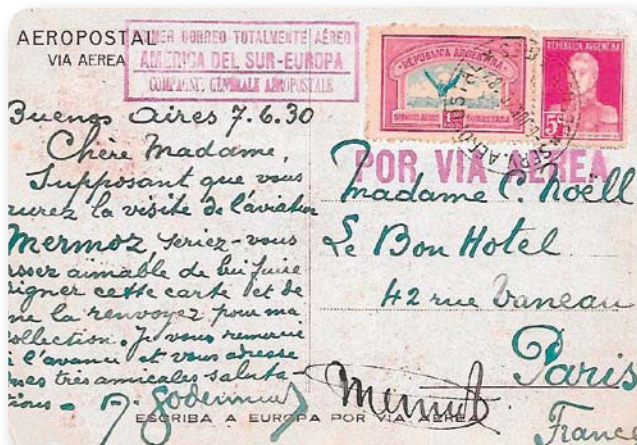 AEROPOSTAL
VIA AEREA
PRIMER CORREO TOTALMENTE AÉREO
AMERICA DEL SUR-EUROPA
COMPAGNIE GENERALE AEROPOSTALE
REPUBLICA ARGENTINA
SERVICIO AEREO
SOBRETASA
REPUBLICA ARGENTINA
5
POR VIA AEREA
Buenos Aires 7.6.30
Chère Madame,
Supposant que vous
aurez la visite de l'aviateur
Mermoz, seriez-vous
assez aimable de lui faire
signer cette carte et de
me la renvoyez pour ma
collection. Je vous remercie
à l'avance et vous adresse
mes très amicales saluta-
tions.
Madame C. Noëll
Le Bon Hotel
42 rue Vaneau
Paris
France
ESCRIBA A EUROPA POR VIA AEREA